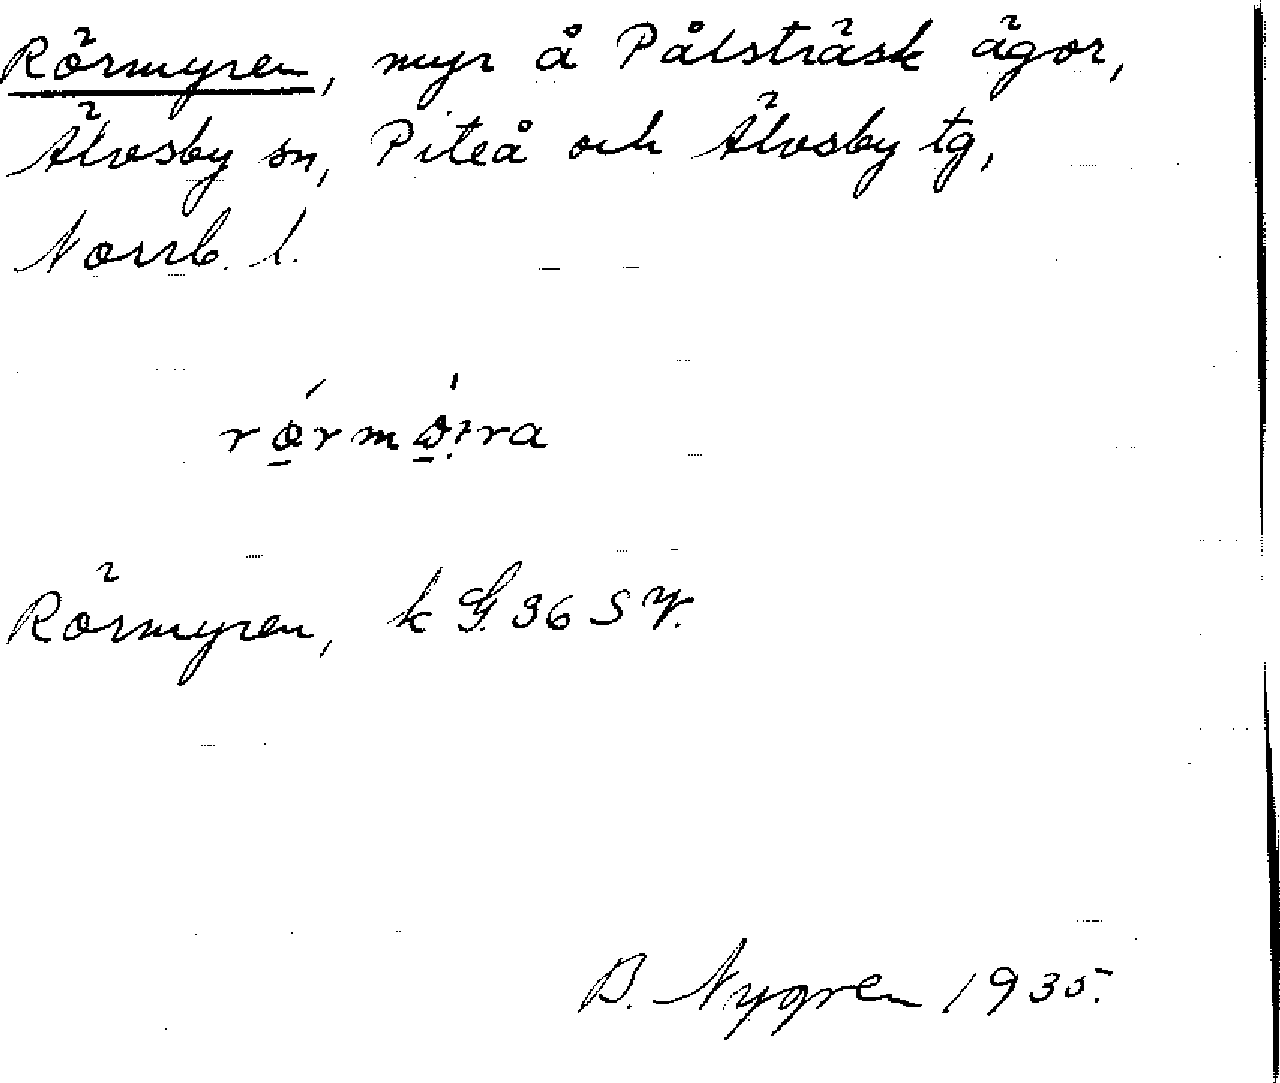 Rörmyren, myr å Pålsträsk ägor,
Älvsby sn, Piteå och Älvsby tg,
Norrb. l.
Rörmyren, k G. 36 S V.
B. Nygren 1935.